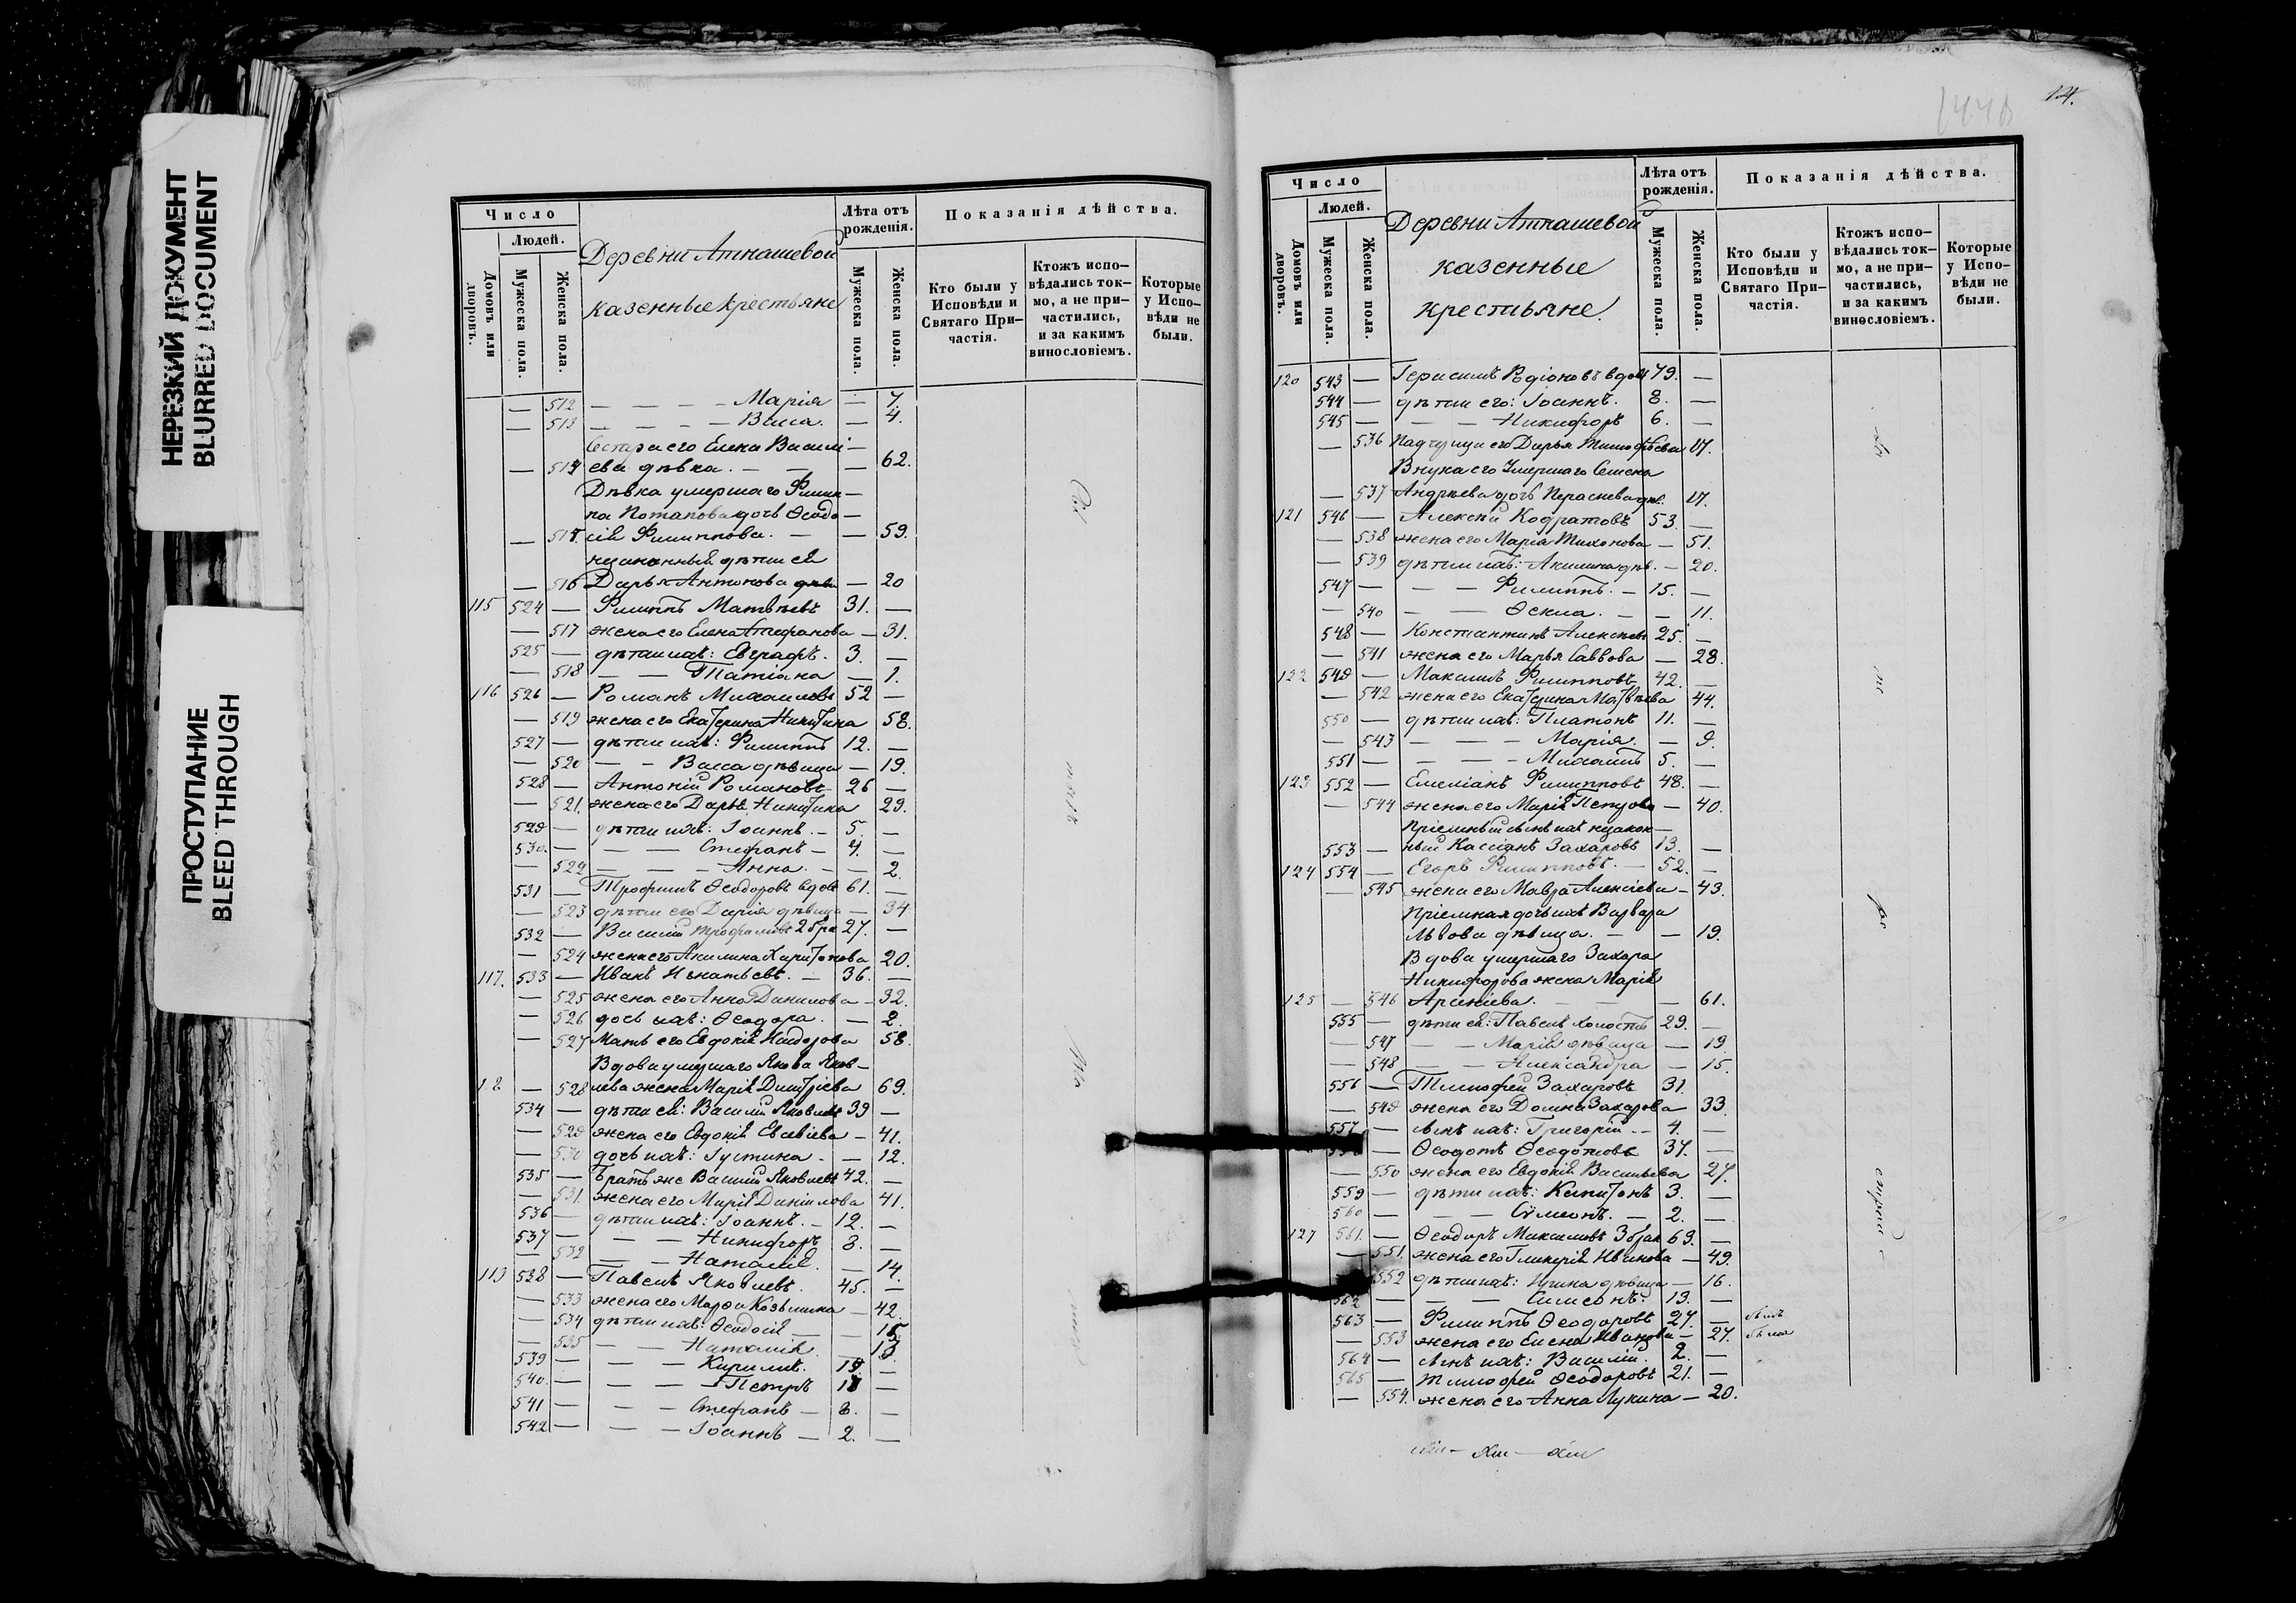 НЕРЕЗКИЙ ДОКУМЕНТ
BLURRED DOCUMENT
ПРОСТУПАНИЕ
BLEED THROUGH
Число
Людей.
Домовъ или дворовъ.
Мужеска пола.
Женска пола.
Деревни Атнашевой
казенные крестьяне
Лѣта отъ рожденія.
Мужеска пола.
Женска пола.
Показанія дѣйства.
Кто были у Исповѣди и Святаго При-частія.
Ктожъ испо-вѣдались ток-мо, а не при-частились, и за какимъ винословіемъ.
Которые у Испо-вѣди не были.
— 512 — — — — Марія — 7
— 513 — — — — Васса. — 4.
Сестра его Елена Василі —
— 514 ева дѣвка. — — — 62.
Дѣвка умершаго Филип —
па Потапова дочь Ѳеодо —
— 515 сія Филиппова. — — 59.
незаконный дѣти ея
— 516 Дарья Антонова — 20
115 524 — Филиппъ Матвѣевъ 31. —
— 517 жена его Елена Стефанова — 31.
525 — дѣти ихъ: Евграфъ. 3. —
— 518 — — Татіана — 1.
116 526 — Романъ Михаиловъ 52 —
— 519 жена его Екатерина Никитина 58.
527 — дѣти ихъ: Филиппъ 12. —
— 520 — — Васса дѣвица — 19.
528 — Антоній Романовъ 26 —
— 521. жена его Дарья Никитина 29.
529 — дѣти ихъ: Іоаннъ. — 5. —
530 — — — Стефанъ — 4. —
— 522 — — — Анна. — — 2.
531 — Трофимъ Ѳеодоровъ вдов 61. —
— 523 дѣти его Дарія дѣвица — 34
532 — Василій Трофимовъ 2 бра 27. —
— 524 жена его Акилина Харитонова 20.
117. 533 — Иванъ Игнатьевъ. — 36. —
— 525 жена его Анна Данилова — 32.
— 526 дочь ихъ: Ѳеодора. — 2.
— 527 Мать его Евдокія 58.
Вдова умершаго Якова Яков —
— 528 лева жена Марія Димитріева 69.
534 — дѣти ея: Василій Яковлевъ 39 —
— 529 жена его Евдокія Евсевіева — 41.
— 530 дочь ихъ: Іустина — — 12.
535 — Братъ же Василій Яковлевъ 42. —
— 531. жена его Марія Даніилова 41.
536 — дѣти ихъ: Іоаннъ. — 12. —
537 — — — Никифоръ 8. —
— 532 — — Наталія. — 14.
119 538 — Павелъ Яковлевъ. 45. —
— 533 жена его Марѳа Козьмина — 42.
— 534 дѣти ихъ: Ѳеодосія — — 15.
— 535 — — Наталія — 13.
539 — — — Кириллъ.
540. — — — Петръ —
541 — — — Стефанъ — 8. —
542 — — — Іоаннъ — 2. —
14.
Число
Людей.
Домовъ или дворовъ.
Мужеска пола.
Женска пола.
Деревни Атнашевой
казенные
крестьяне.
Лѣта отъ рожденія.
Мужеска пола.
Женска пола.
Показанія дѣйства.
Кто были у Исповѣди и Святаго При-частія.
Ктожъ испо-вѣдались ток-мо, а не при-частились, и за какимъ винословіемъ.
Которые у Испо-вѣди не были.
120 543 — Герасимъ Родіоновъ вдов 79. —
544 — дѣти его: Іоаннъ. 8. —
545 — — — Никифоръ 6. —
— 536 Падчерица его Дарья Тимофѣева 17.
Внука его Умершаго Семена
— 537 Андрѣева дочь 17.
121 546 — Алексѣй Кодратовъ 53. —
— 538 жена его Марія Тихонова — 51.
— 539 дѣти ихъ: Акилина дѣв. — 20.
547 — — — Филиппъ. — 15. —
— 540 — — Ѳекла. — — 11.
548 — Константинъ Алексѣев 25. —
— 541 жена его Марья Саввова — 28.
122 549 — Максимъ Филипповъ 42. —
— 542 жена его Екатерина Матвѣева 44.
550 — дѣти ихъ: Платонъ 11. —
— 543 — — — Марія. — 9.
551 — — — — Михаилъ 5. —
123 552 — Емеліанъ Филипповъ 48. —
— 544 жена его Марія Петрова — 40.
Пріемный сынъ ихъ незакон —
553 — ный Кассіанъ Захаровъ 13. —
124 554 — Егоръ Филипповъ. — 52. —
— 545 жена его Мавра Алексіева — 43.
Пріемная дочь ихъ Варвара
Львова дѣвица. — — 19.
Вдова умершаго Захара
Никифорова жена Марія
125 — 546 Арсеніева. — — — 61.
555 — дѣти ея: Павелъ холостъ 29. —
— 547 — — Марія дѣвица — 19
— 548 — — Александра — 15.
556 — Тимофей Захаровъ 31. —
— 549 жена его Домна Захарова — 33.
557 — сынъ ихъ: Григорій — — 4. —
— Ѳеодотъ Ѳеодотовъ 37. —
— 550 жена его Евдокія Васильева 27.
559 — дѣти ихъ: Капитонъ 3. —
560 — — — Сѵмеонъ. — 2. —
127 561. — Ѳеодоръ Максимовъ 3 брак 69. —
— 551. жена его Гликерія Иванова — 49.
552 дѣти ихъ: Ирина дѣвица — 16.
562 — — — Симеонъ. 13. —
563 — Филиппъ Ѳеодоровъ 27. — былъ
— 553 жена его Елена Иванова — 27. была
564 — сынъ ихъ: Василій. 2. —
565 — Тимофей Ѳеодоровъ 21. —
— 554. жена его Анна Лукина — 20.